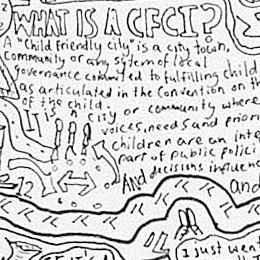 WHAT IS A CFCI?
A "Child friendly city" is a city, town,
community or any system of local
governance committed to fulfilling child
as articulated in the Convention on th
of the child.
It is a city or community where
voices, needs and priori
children are an inte
part of public polici
AND decisions influenc
and
I just went
IT'S A